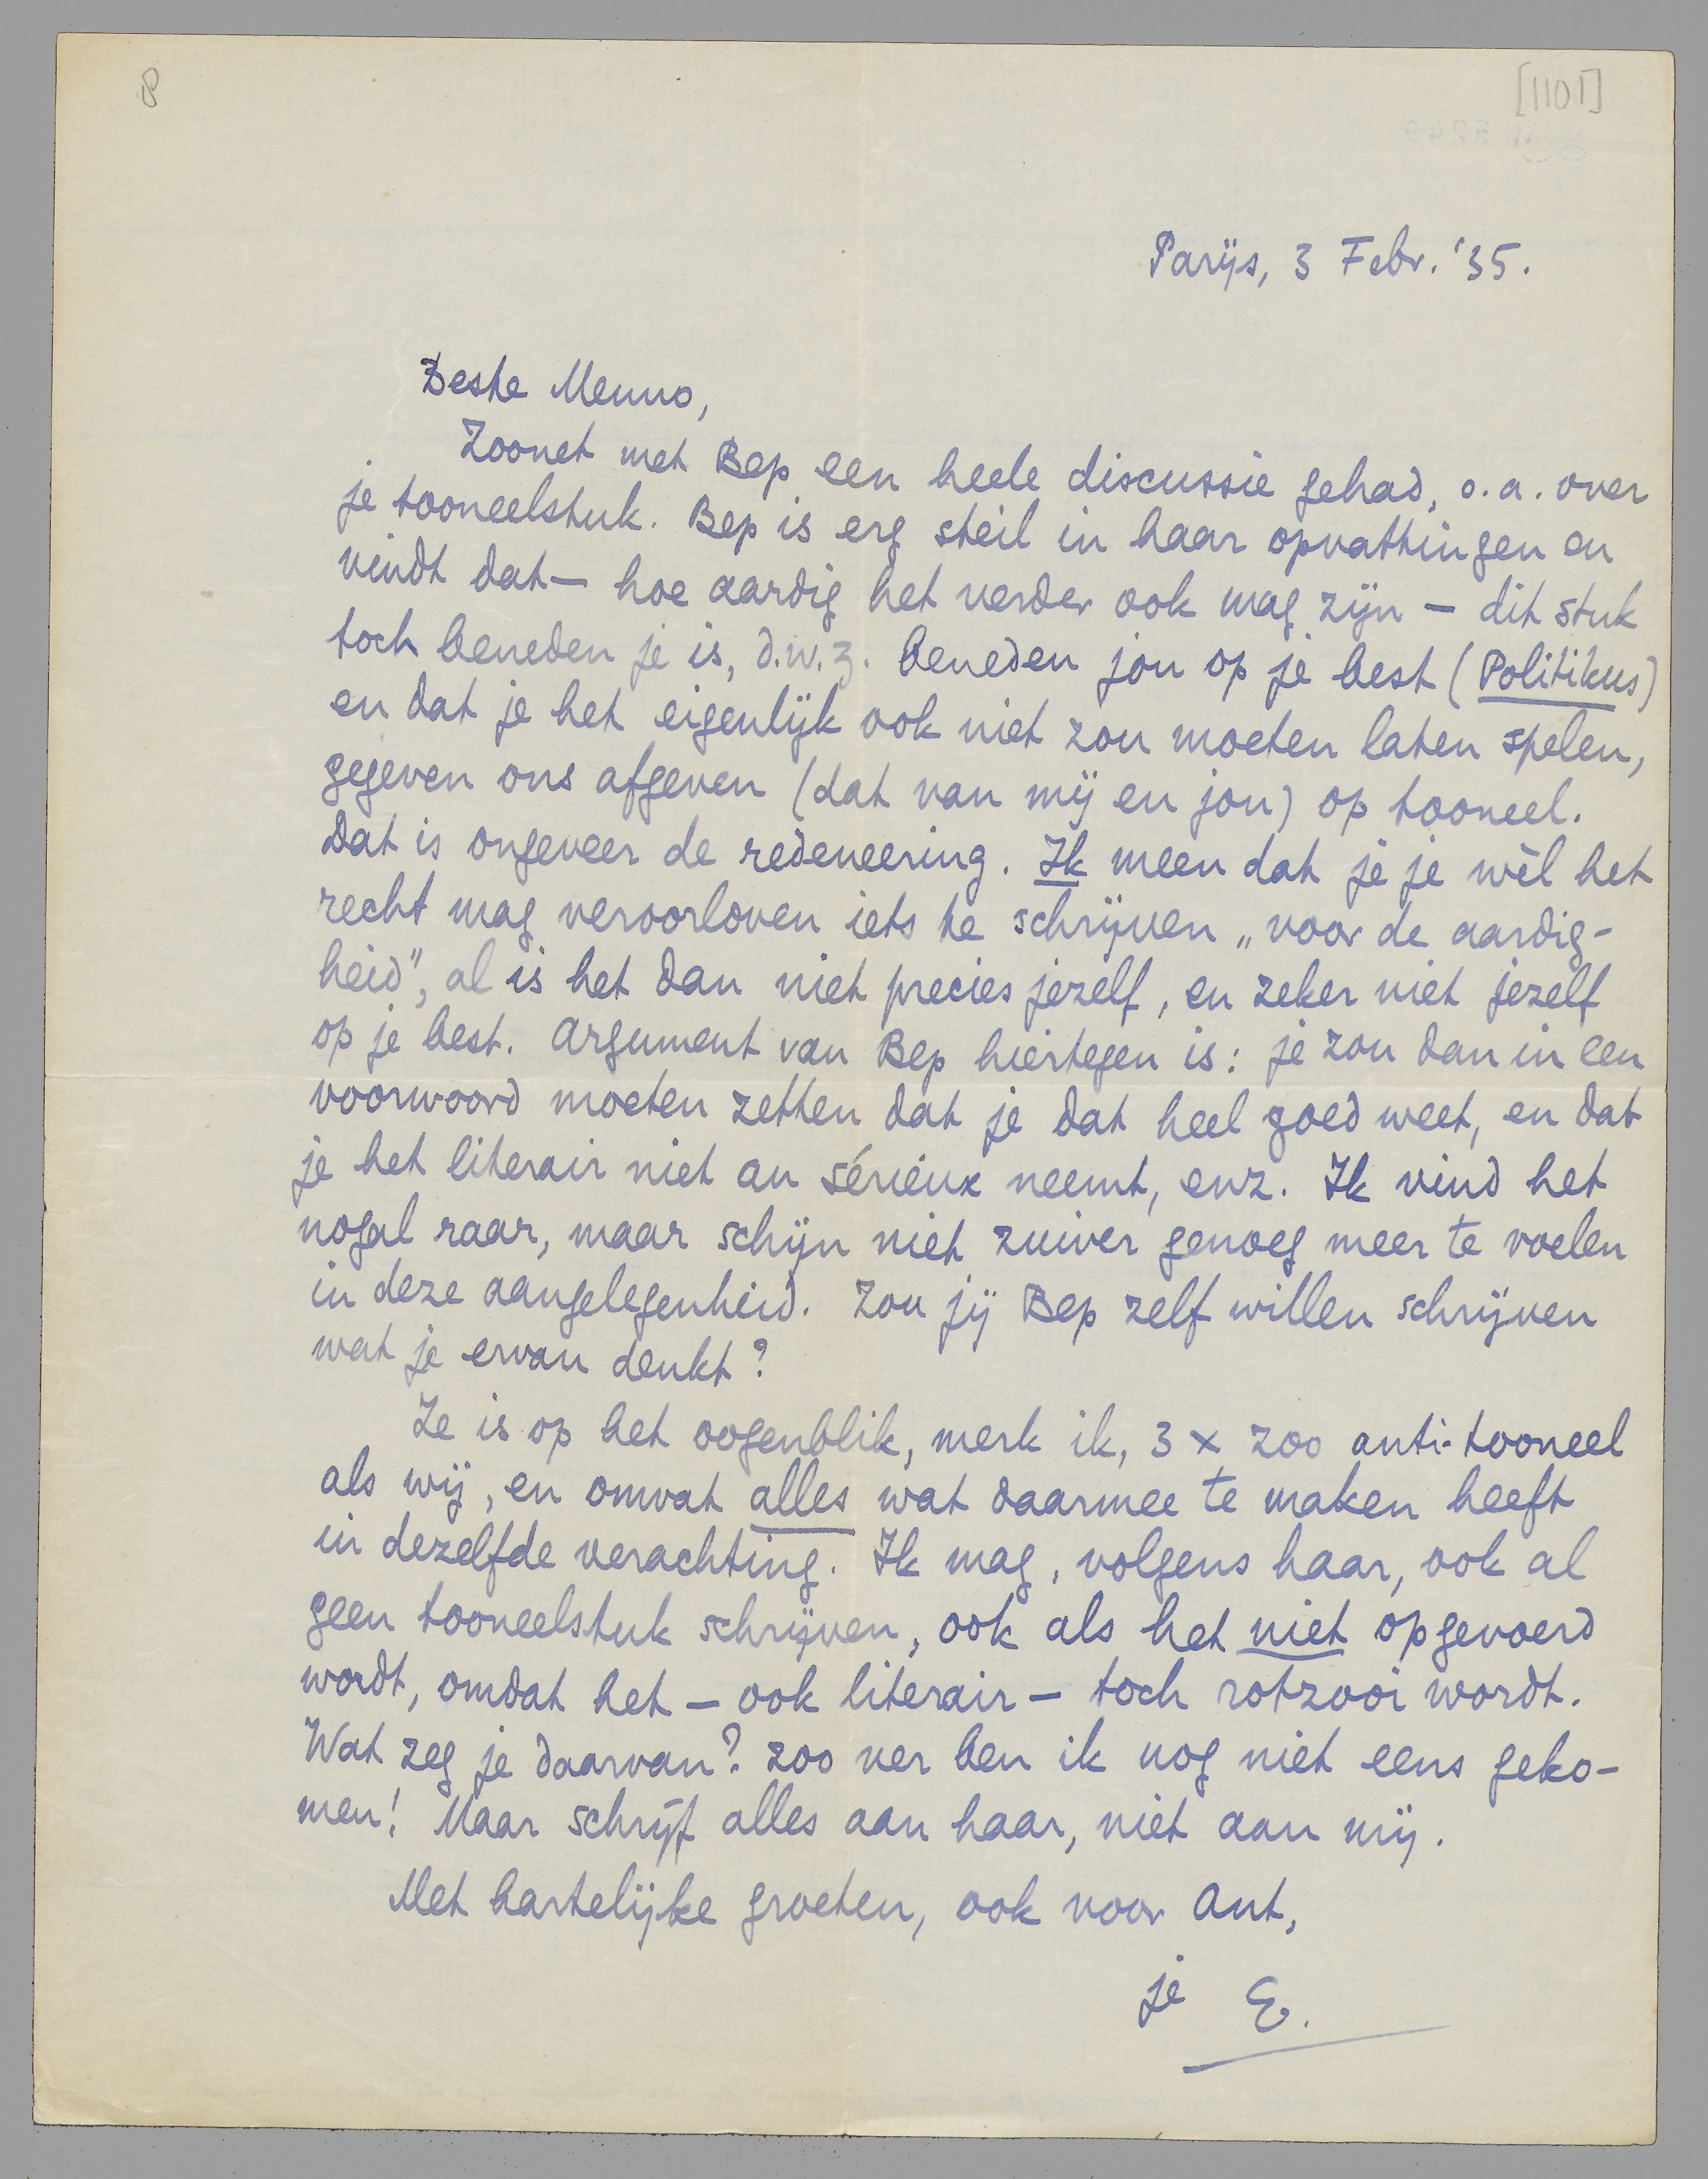 8
[1101]
Parijs, 3 Febr. '35.
Beste Menno,
Zoonet met Bep een heele discussie gehad, o.a. over
je tooneelstuk. Bep is erg steil in haar opvattingen en
vindt dat — hoe aardig het verder ook mag zijn — dit stuk
toch beneden je is, d.w.z. beneden jou op je best (Politikus)
en dat je het eigenlijk ook niet zou moeten laten spelen,
gegeven ons afgeven (dat van mij en jou) op tooneel.
Dat is ongeveer de redeneering. Ik meen dat je je wèl het
recht mag veroorloven iets te schrijven „voor de aardig-
heid”, al is het dan niet precies jezelf, en zeker niet jezelf
op je best. Argument van Bep hiertegen is: je zou dan in een
voorwoord moeten zetten dat je dat heel goed weet, en dat
je het literair niet au sérieux neemt, enz. Ik vind het
nogal raar, maar schijn niet zuiver genoeg meer te voelen
in deze aangelegenheid. Zou jij Bep zelf willen schrijven
wat je ervan denkt?
Ze is op het oogenblik, merk ik, 3 x zoo anti-tooneel
als wij, en omvat alles wat daarmee te maken heeft
in dezelfde verachting. Ik mag, volgens haar, ook al
geen tooneelstuk schrijven, ook als het niet opgevoerd
wordt, omdat het — ook literair — toch rotzooi wordt.
Wat zeg je daarvan? Zoo ver ben ik nog niet eens geko-
men! Maar schrijf alles aan haar, niet aan mij.
Met hartelijke groeten, ook voor Ant,
je E.